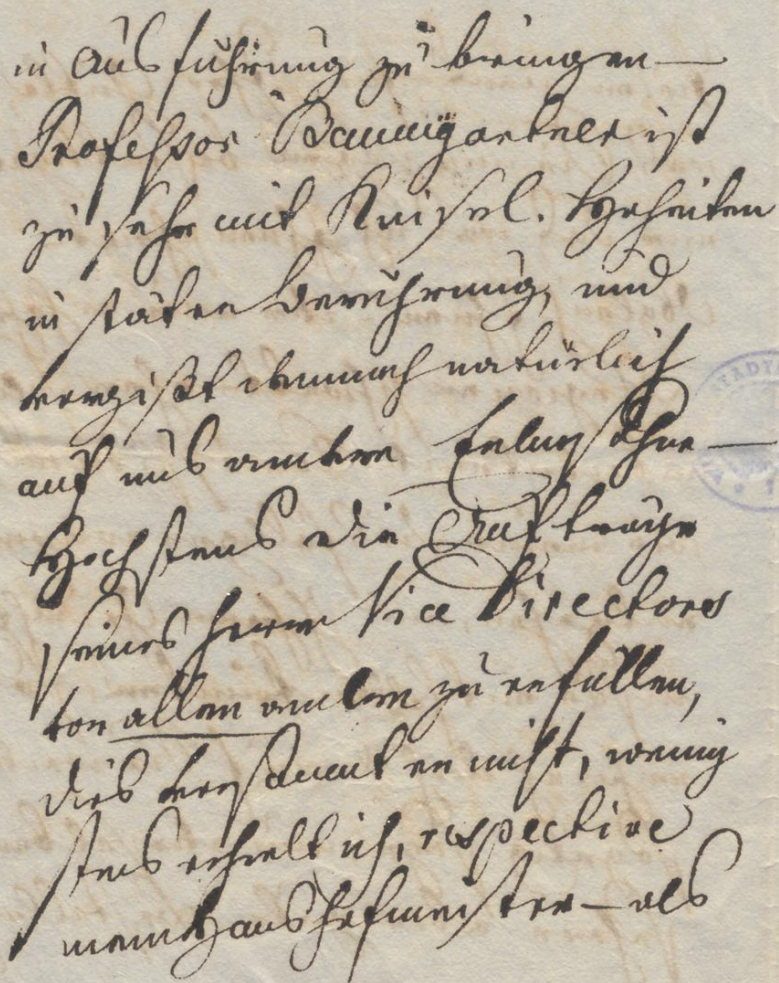 in Ausführung zu bringen —
Professor Baumgartner ist
zu sehr mit Kaiserl. Hoheiten
in stäter Berührung, und
vergißt demnach natürlich
auf uns andere Erdensöhne —
Höchstens die Aufträge
seines Herrn Vice Directors
vor allem andern zu erfüllen,
dies versäumt er nicht, wenig
stens erhielt ich, respective
mein Haushofmeister — als